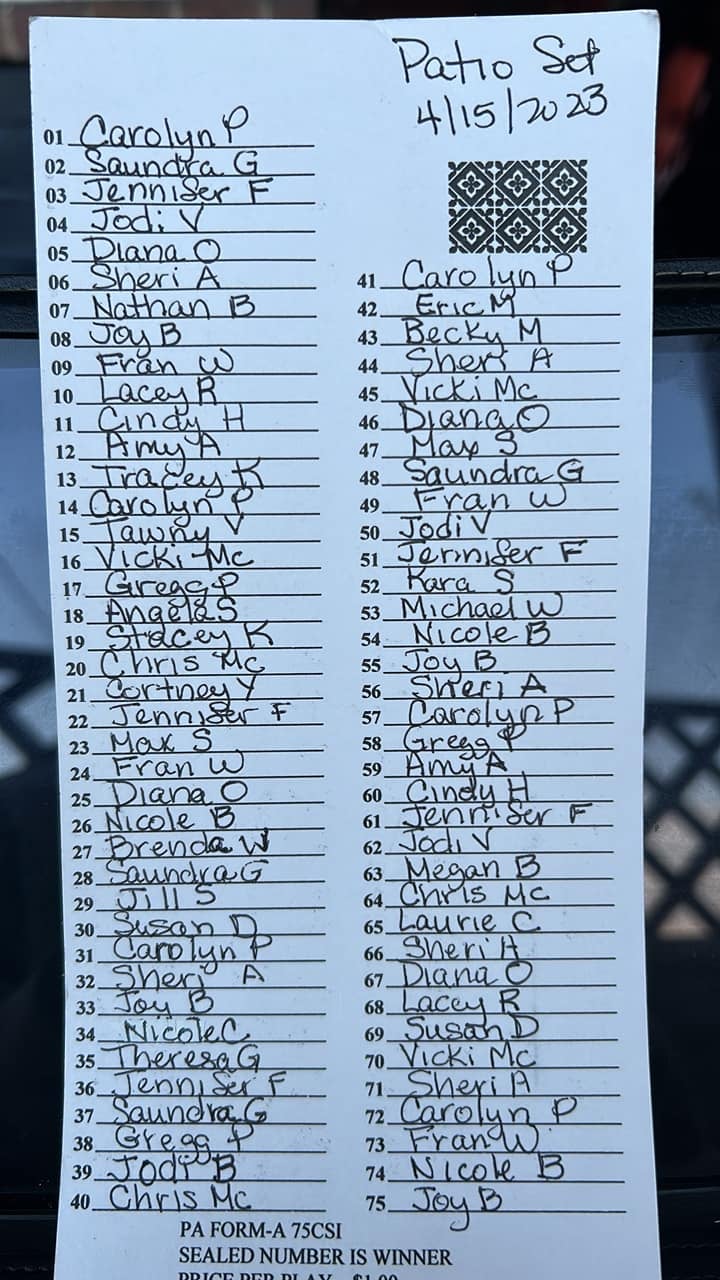 Patio Set
4/15/2023
01 Carolyn P
02 Saundra G
03 Jennifer F
04 Jodi V
05 Diana O
06 Sheri A
07 Nathan B
08 Joy B
09 Fran W
10 Lacey R
11 Cindy H
12 Amy A
13 Tracey K
14 Carolyn P
15 Tawny V
16 Vicki Mc
17 Gregg P
18 Angela S
19 Stacey K
20 Chris Mc
21 Cortney Y
22 Jennifer F
23 Max S
24 Fran W
25 Diana O
26 Nicole B
27 Brenda W
28 Saundra G
29 Jill S
30 Susan D
31 Carolyn P
32 Sheri A
33 Joy B
34 Nicole C
35 Theresa G
36 Jennifer F
37 Saundra G
38 Gregg P
39 Jodi B
40 Chris Mc
41 Carolyn P
42 Eric M
43 Becky M
44 Sheri A
45 Vicki Mc
46 Diana O
47 Max S
48 Saundra G
49 Fran W
50 Jodi V
51 Jennifer F
52 Kara S
53 Michael W
54 Nicole B
55 Joy B
56 Sheri A
57 Carolyn P
58 Gregg P
59 Amy A
60 Cindy H
61 Jennifer F
62 Jodi V
63 Megan B
64 Chris Mc
65 Laurie C
66 Sheri H
67 Diana O
68 Lacey R
69 Susan D
70 Vicki Mc
71 Sheri A
72 Carolyn P
73 Fran W
74 Nicole B
75 Joy B
PA FORM-A 75CSI
SEALED NUMBER IS WINNER
PRICE PER PLAY $1.00